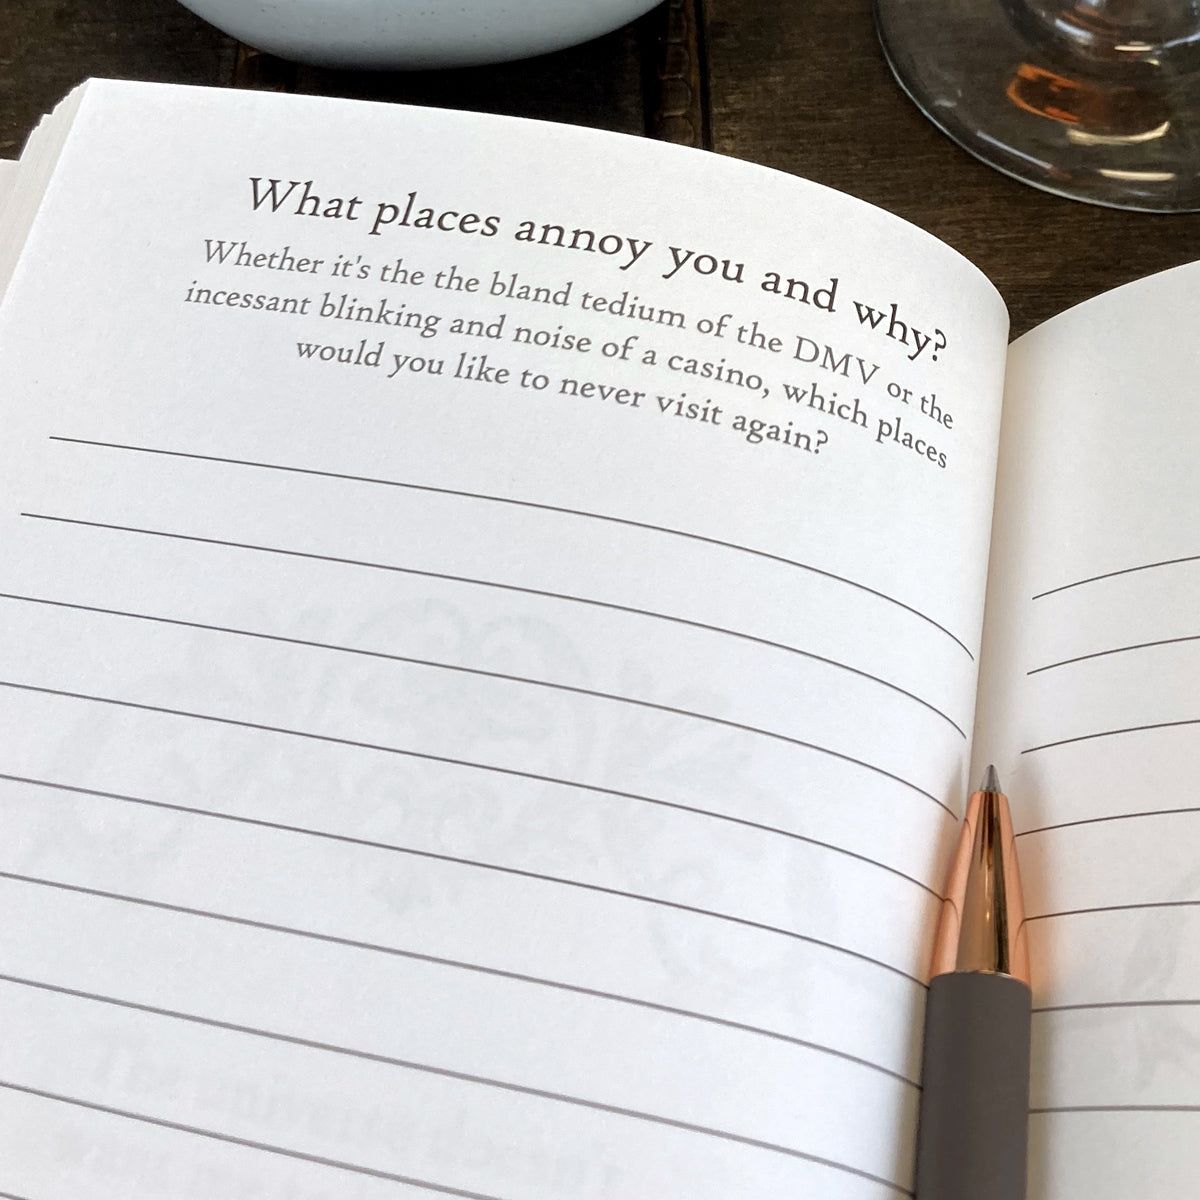 What places annoy you and why?
Whether it's the the bland tedium of the DMV or the
incessant blinking and noise of a casino, which places
would you like to never visit again?